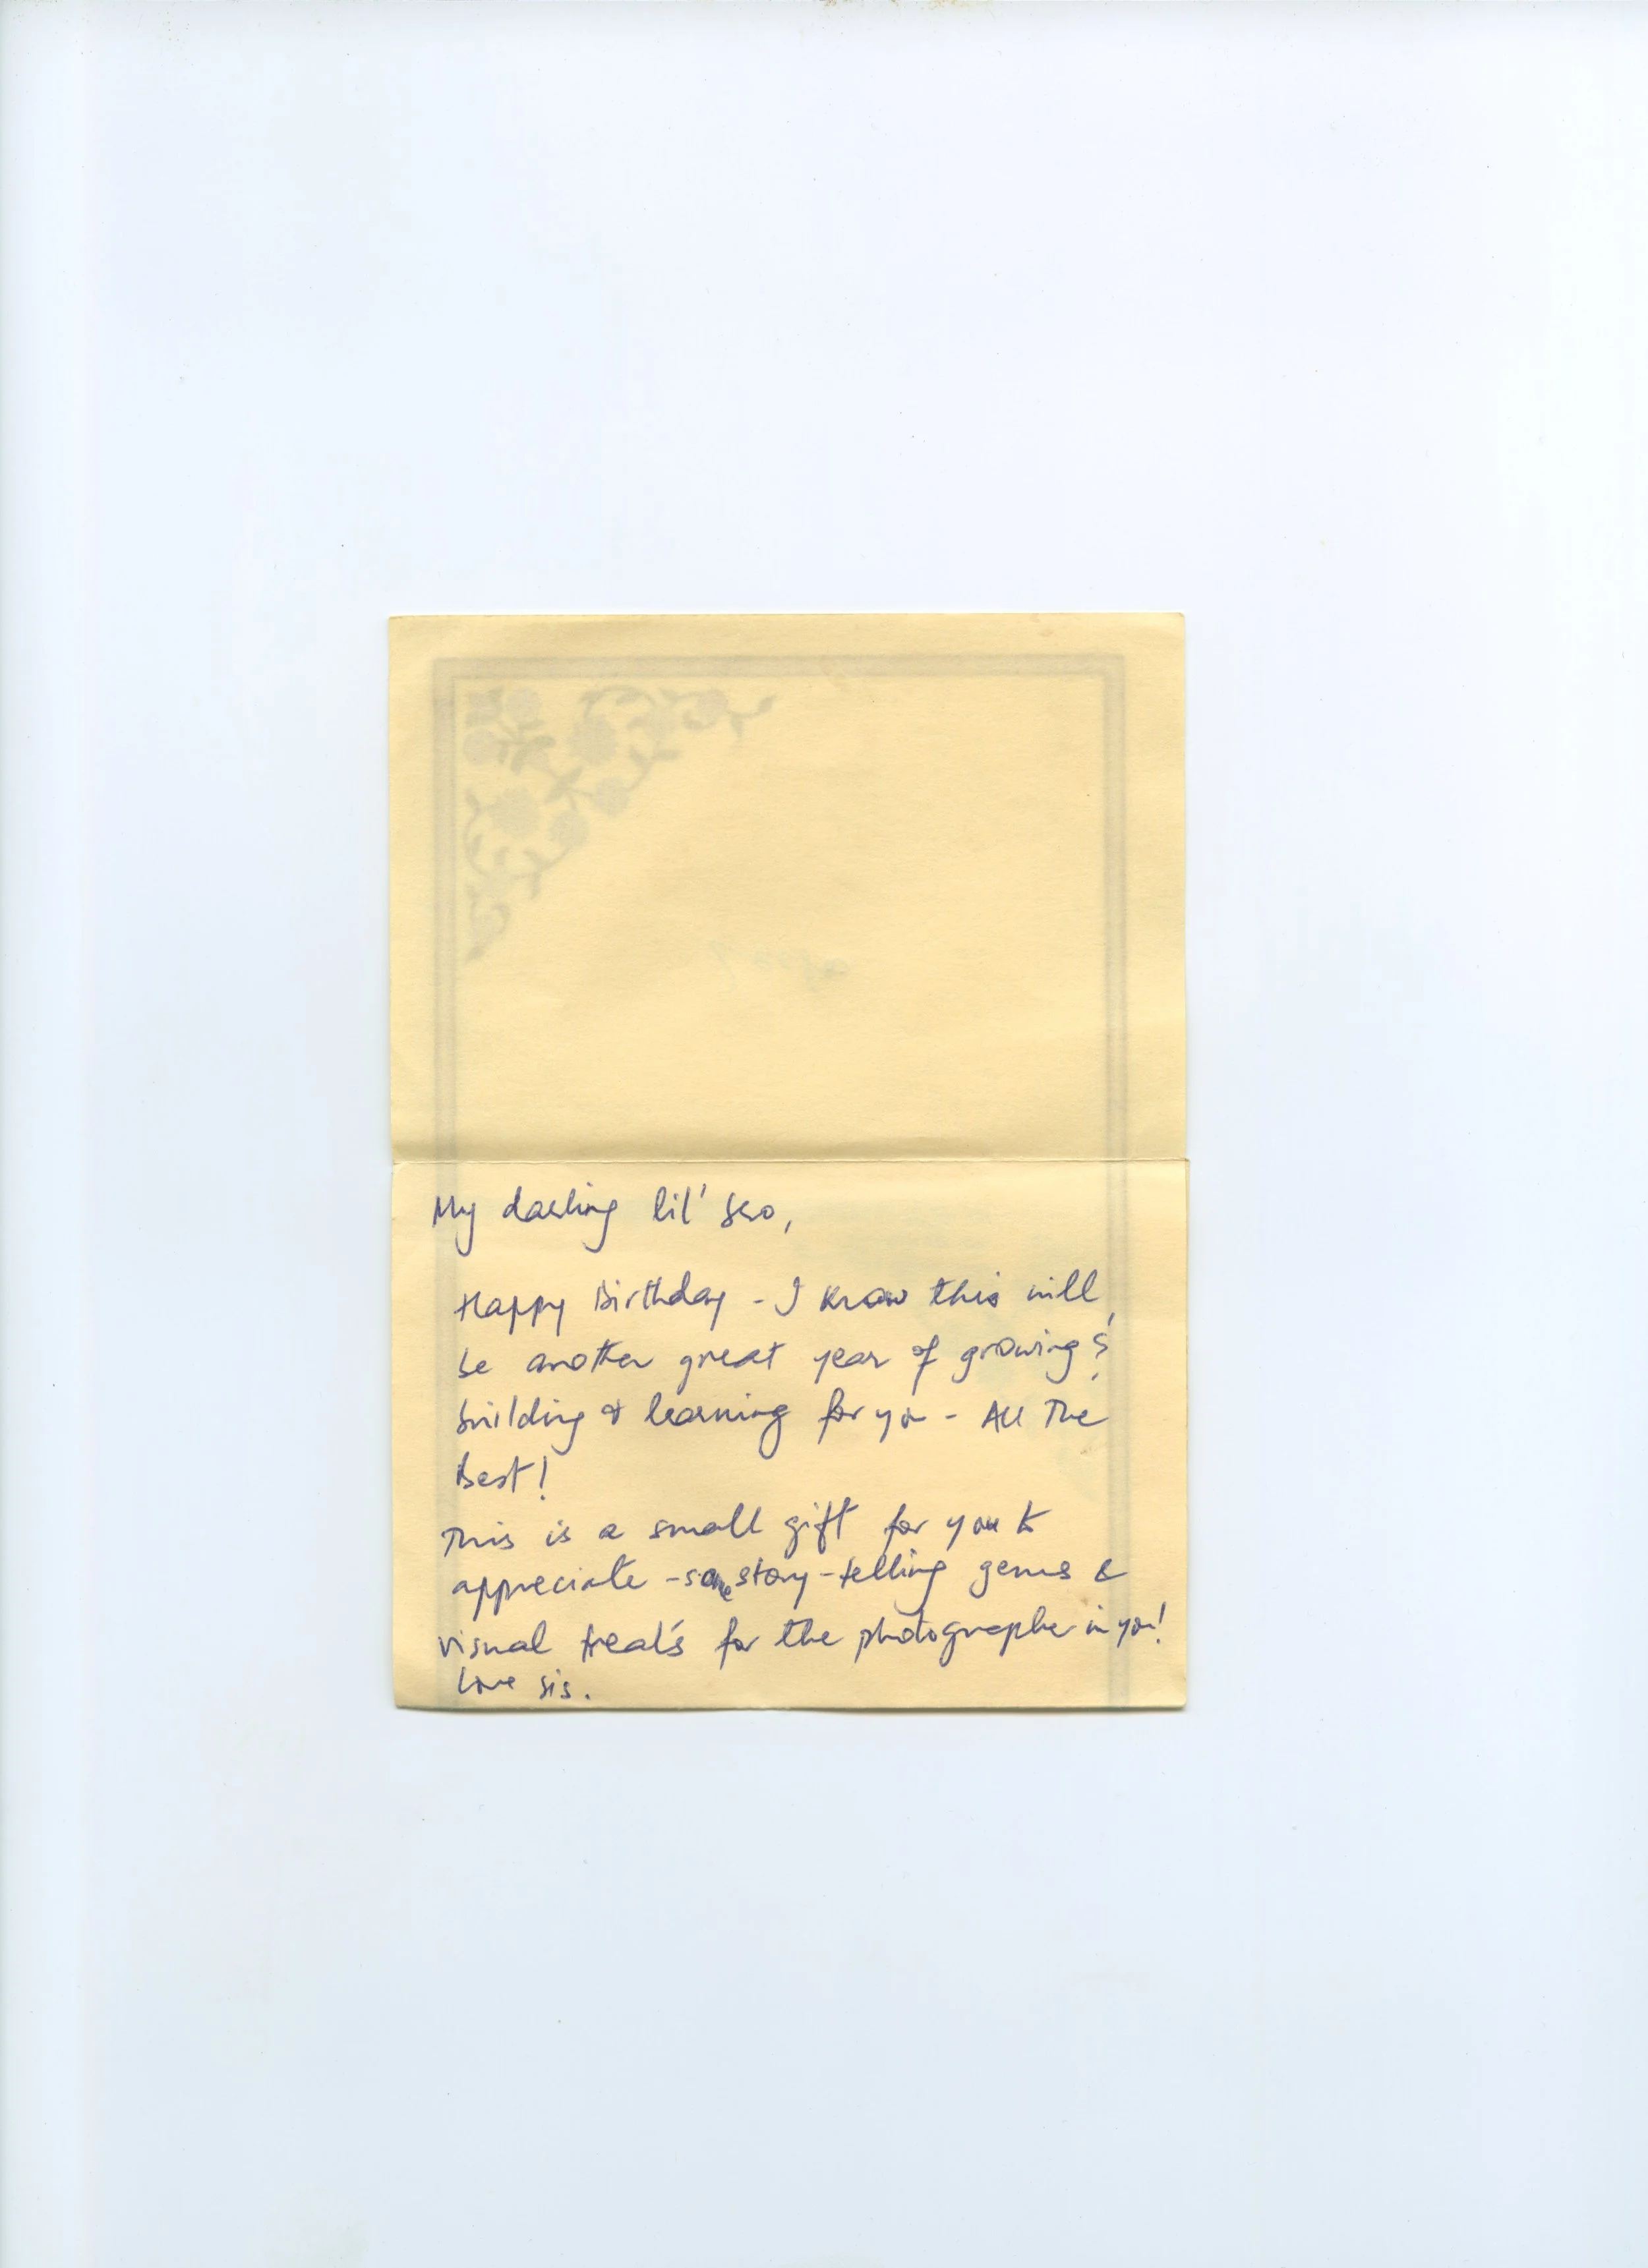 My darling lil' bro,
Happy Birthday - I know this will
be another great year of growing &
building & learning for you - All The
Best!
This is a small gift for you to
appreciate - some story-telling gems &
visual treats for the photographer in you!
Love sis.